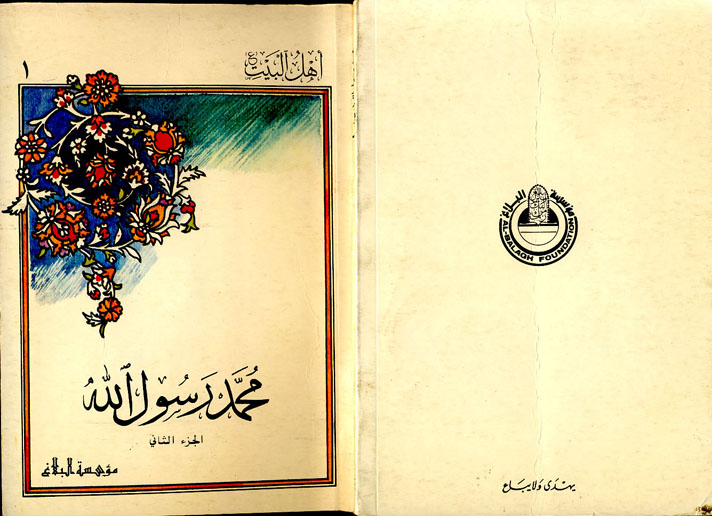 أهل البيت (ع)
١
محمد رسول الله
الجزء الثاني
مؤسسة البلاغ
مؤسسة البلاغ
AL-BALAGH FOUNDATION
يهدى ولا يباع